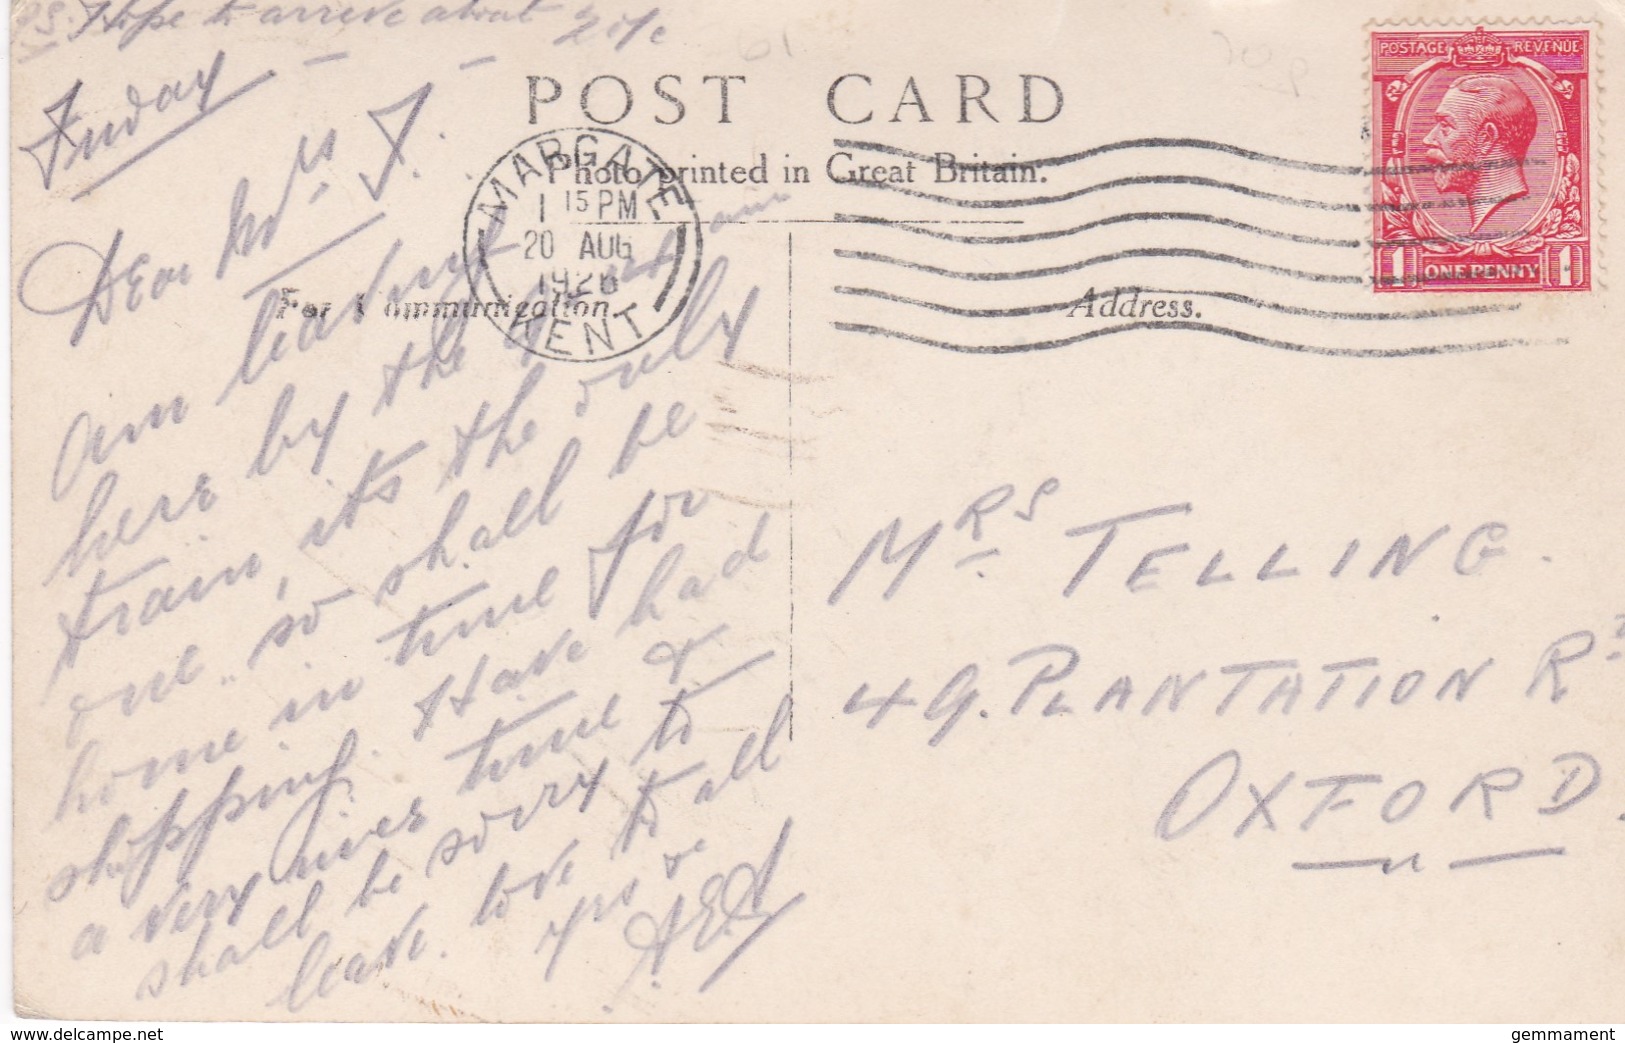 PS. Hope to arrive about
Friday
POST CARD
Photo printed in Great Britain.
MARGATE
1 15 PM
20 AUG
1926
KENT
POSTAGE REVENUE
1 ONE PENNY 1
For Communication.
Address.
Dear Mrs T.
am leaving
here by the am
train, its the only
one so shall be
home in time for
shopping. Have had
a very nice time &
shall be sorry to
leave. love to all
yrs &c
MRS TELLING.
49. PLANTATION RD
OXFORD.
www.delcampe.net
gemmament